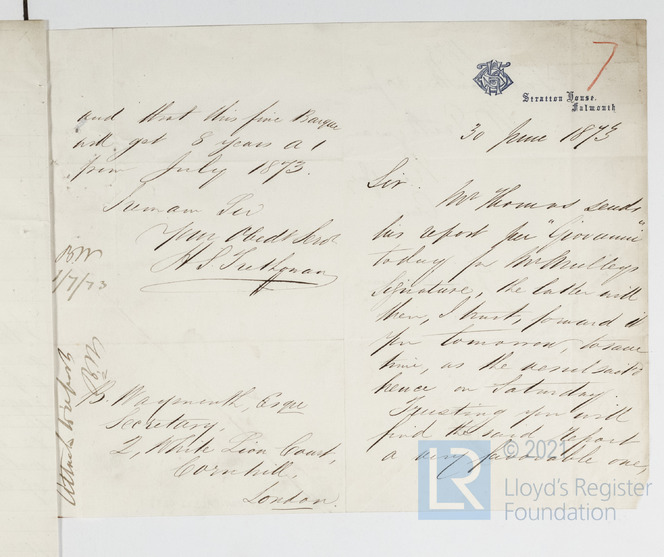 7
Stratton House.
Falmouth
30 June 1873
Sir
Mr Thomas sends
his report per "Giovannin"
today for Mr Mulleys
signature, the latter will
then, I trust, forward it
you tomorrow, to save
time, as the vessel sails
hence on Saturday.
Trusting you will
find the said Report
a very favorable one,
and that this fine Barque
will get 8 years A 1
from July 1873.
I remain Sir
Your Obedt Servt
BW
1/7/73
B. Waymouth, Esqre
Secretary,
2, White Lion Court,
Cornhill,
London.
Attach to report
© 2021
LR
Lloyd's Register
Foundation